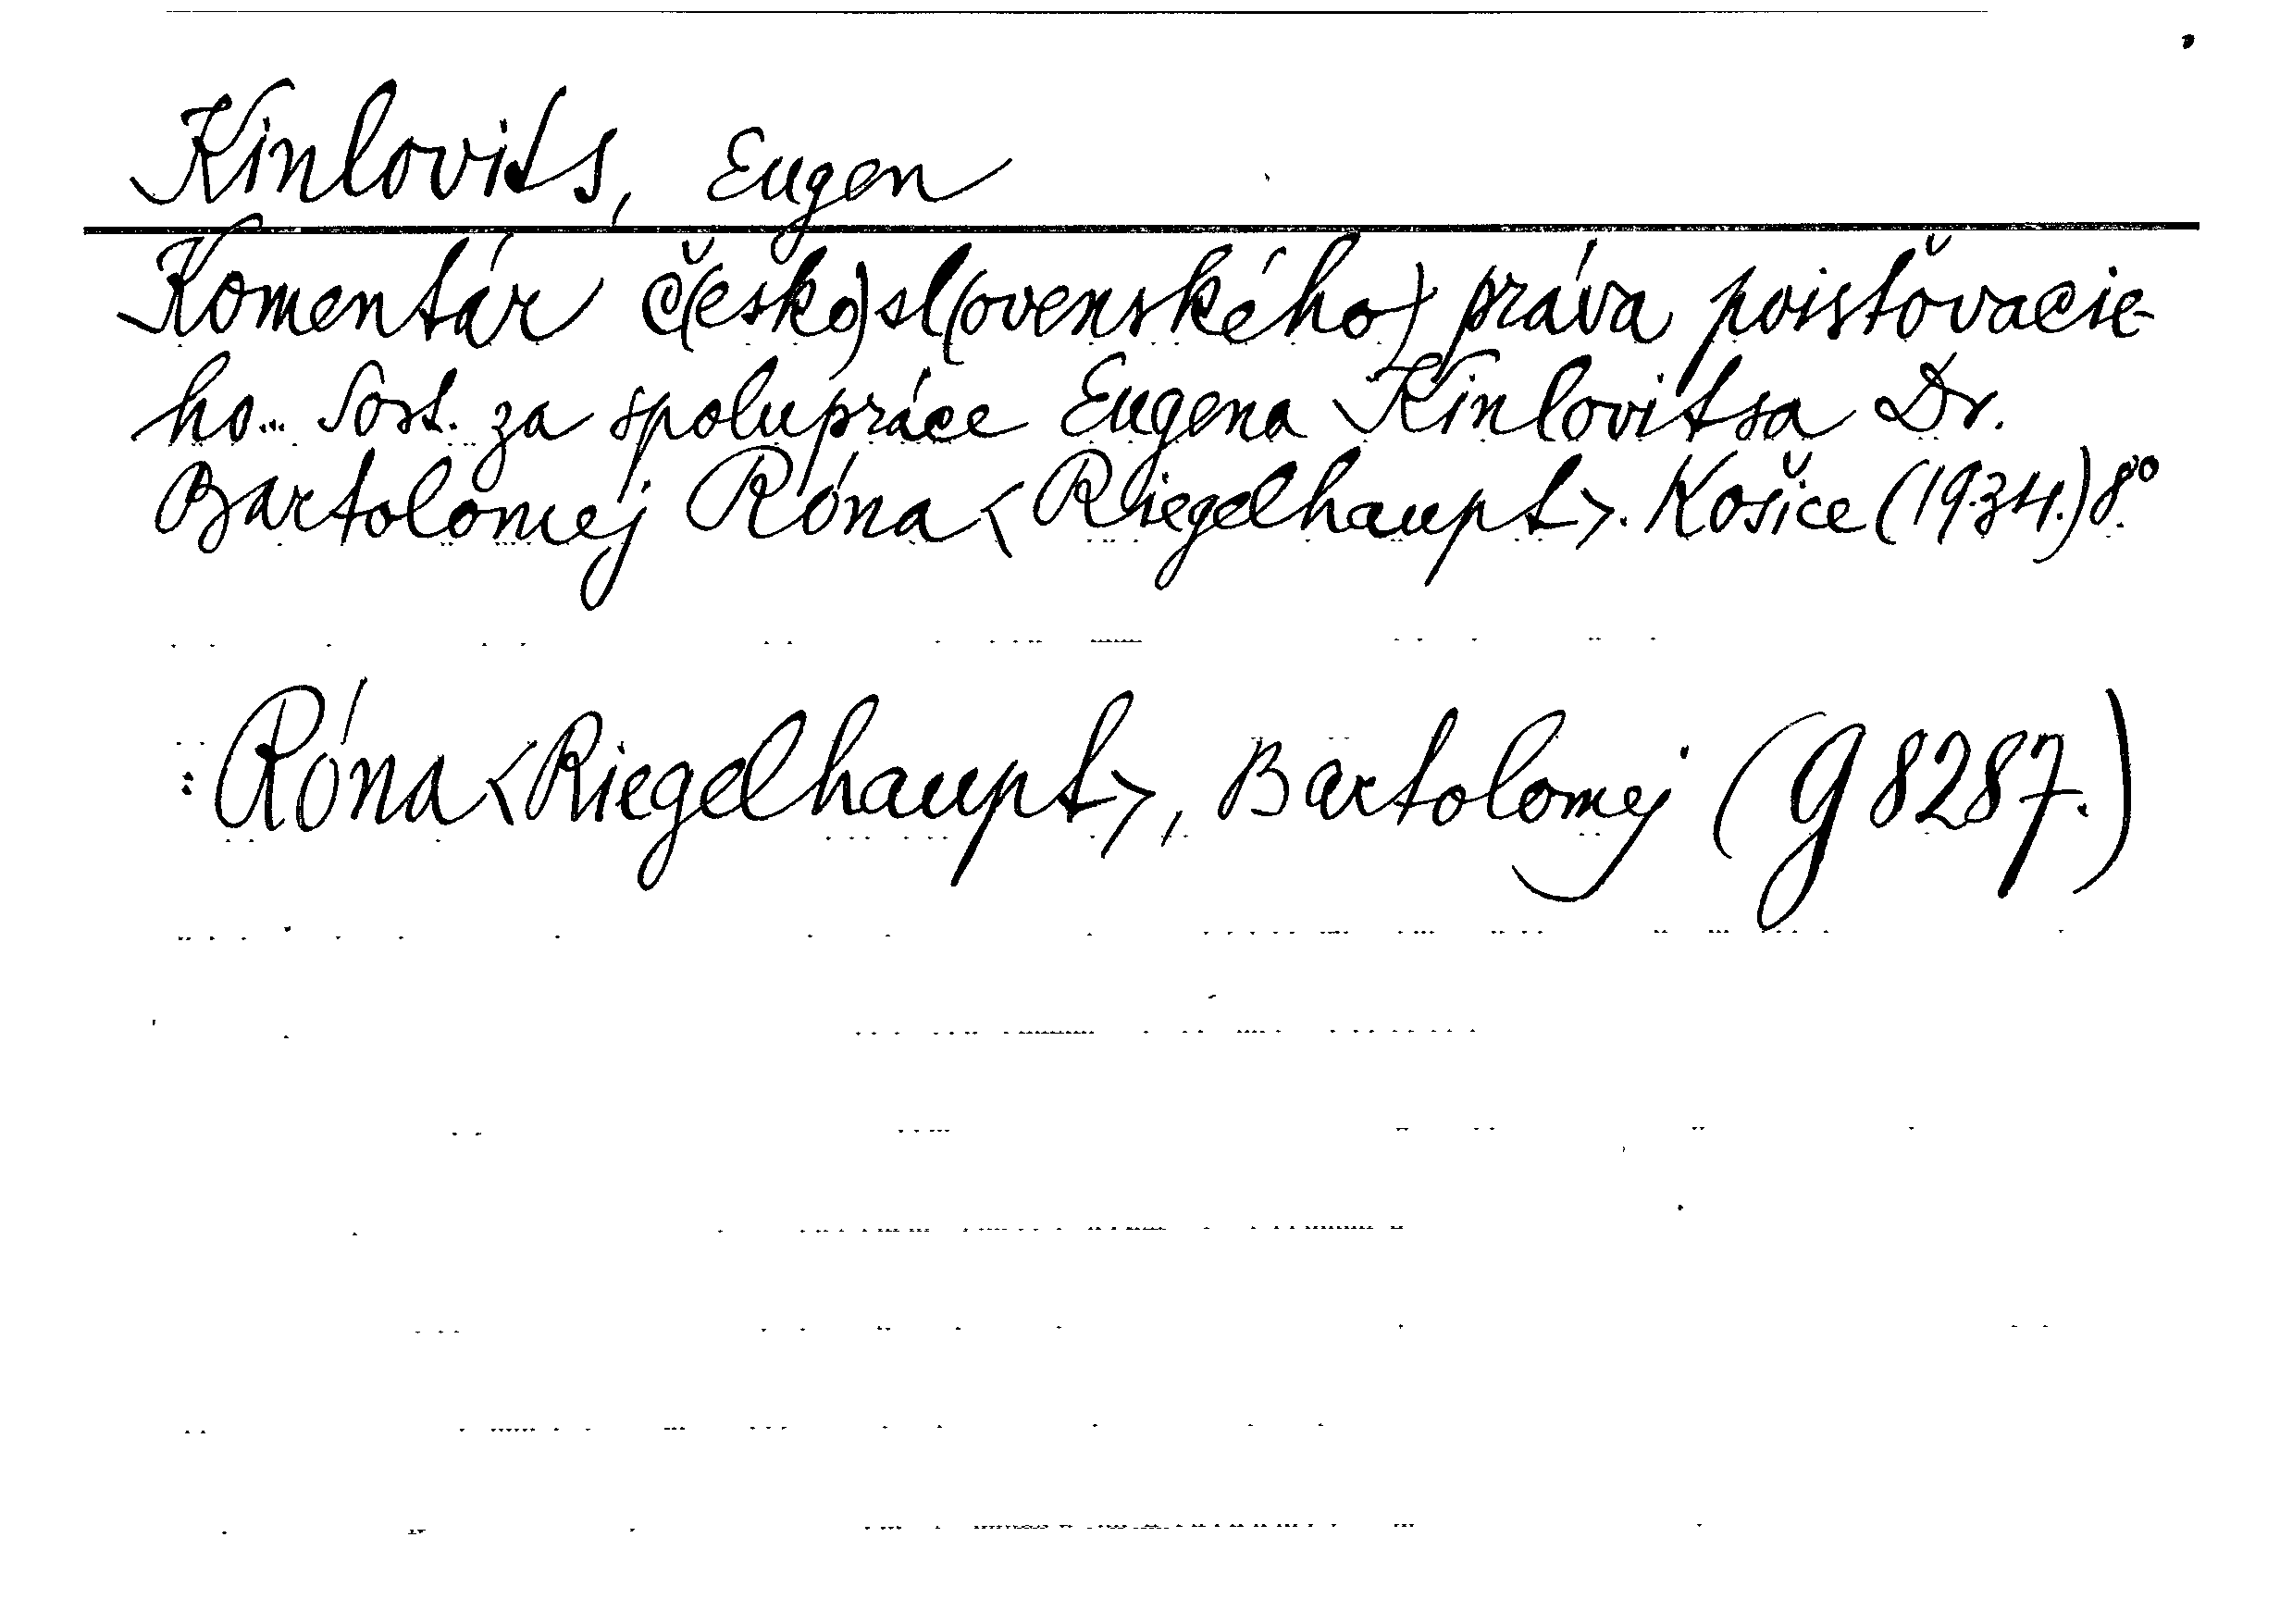 Kinlovits, Eugen
Komentár č(esko)sl(ovenského) práva poisťovacie-
ho... Sost. za spolupráce Eugena Kinlovitsa Dr.
Bartolomej Róna <Riegelhaupt>. Košice (1934.) 8°
: Róna <Riegelhaupt>, Bartolomej (g 8287.)